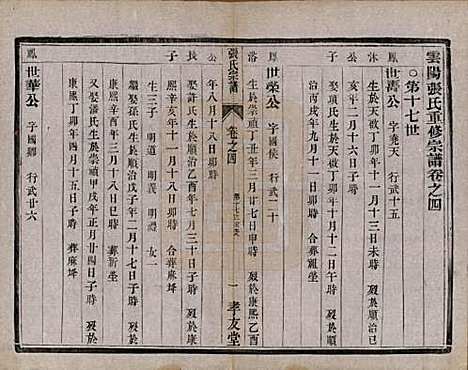 雲陽張氏重修宗譜卷之四
○第十七世
鳳
世濤公 字堯天 行武十五
沐 生於天啟二年十一月十三日卯時 歿於順治己
公 亥年二月初二日亥時
次 娶 氏生於天啟四年十一月十二日 時 歿於
子 治丙戌年九月十一日卯時 合葬觀坐
鳳 世榮公 字國侯 行武二十
洛 生於崇禎 丑年三月廿七日申時 歿於康熙乙酉
公 年八月十八日卯時
長 娶許氏生於順治乙酉年七月三十日子時 歿於康
子 熙辛亥年十一月十八日卯時 合葬麻坪
生三子 明道 明禮 明志 女一
繼娶孫氏生於順治戊子年二月十七日子時 歿於
十八日巳時 葬新坐
又娶潘氏生於崇禎甲戌年正月廿四日子時 歿於
康熙丁卯年四月十五日子時 葬麻坪
鳳 世華公 字國卿 行武廿六
張氏宗譜
卷之四
第十七世
一
孝友堂